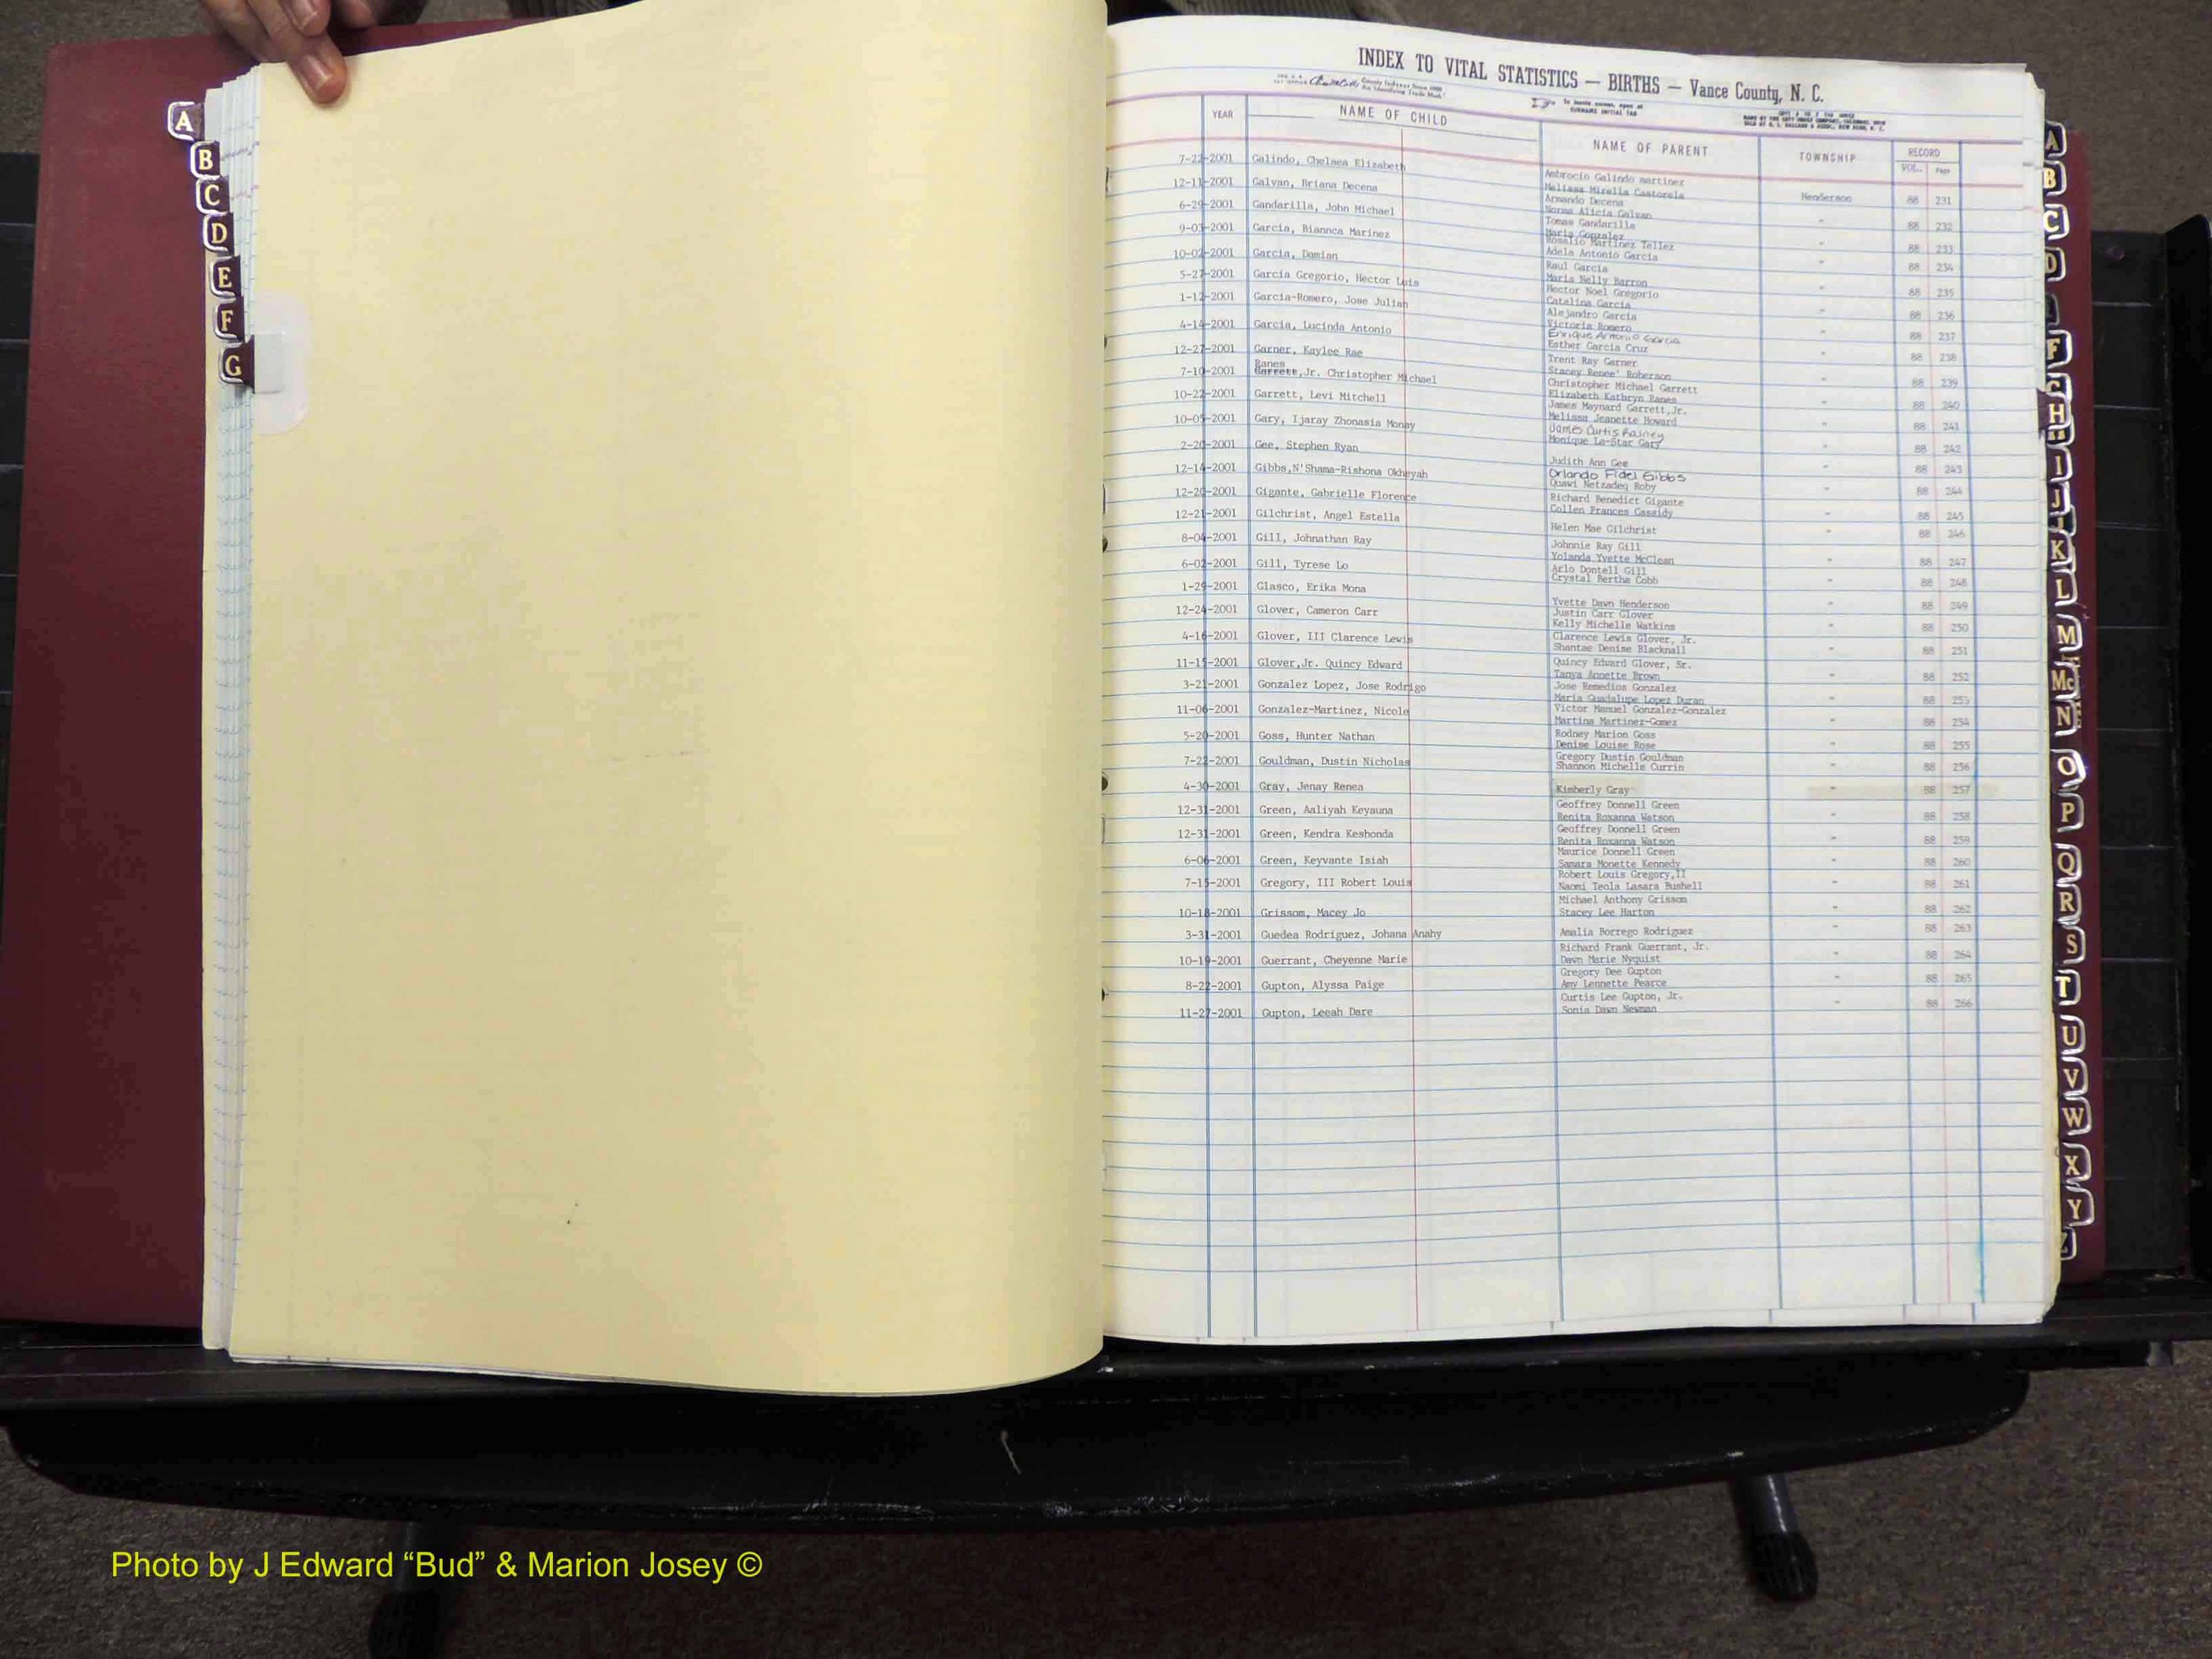 A
B
C
D
E
F
G
INDEX TO VITAL STATISTICS — BIRTHS — Vance County, N. C.
YEAR NAME OF CHILD NAME OF PARENT TOWNSHIP RECORD
VOL. PAGE
7-22-2001 Galindo, Chelsea Elizabeth Ambrocio Galindo martinez Henderson 88 231
Melissa Mirella Castorela
12-11-2001 Galvan, Briana Decena Armando Decena " 88 232
Norma Alicia Galvan
6-29-2001 Gandarilla, John Michael Tomas Gandarilla " 88 233
Maria Gonzalez
9-03-2001 Garcia, Biannca Marinez Rosalio Martinez Tellez " 88 234
Adela Antonio Garcia
10-02-2001 Garcia, Damian Raul Garcia " 88 235
Maria Nelly Barron
5-27-2001 Garcia Gregorio, Hector Luis Hector Noel Gregorio " 88 236
Catalina Garcia
1-12-2001 Garcia-Romero, Jose Julian Alejandro Garcia " 88 237
Victoria Romero
4-14-2001 Garcia, Lucinda Antonio Enrique Antonio Garcia " 88 238
Esther Garcia Cruz
12-27-2001 Garner, Kaylee Rae Trent Ray Garner " 88 239
Stacey Renee' Roberson
Ranes
7-10-2001 Garrett,Jr. Christopher Michael Christopher Michael Garrett " 88 240
Elizabeth Kathryn Ranes
10-22-2001 Garrett, Levi Mitchell James Maynard Garrett,Jr. " 88 241
Melissa Jeanette Howard
10-05-2001 Gary, Ijaray Zhonasia Monay James Curtis Rainey " 88 242
Monique La-Star Gary
2-20-2001 Gee, Stephen Ryan Judith Ann Gee " 88 243
12-14-2001 Gibbs,N'Shama-Rishona Okheyah Orlando Fidel Gibbs " 88 244
Quawi Netzadeq Roby
12-20-2001 Gigante, Gabrielle Florence Richard Benedict Gigante " 88 245
Collen Frances Cassidy
12-21-2001 Gilchrist, Angel Estella Helen Mae Gilchrist " 88 246
8-04-2001 Gill, Johnathan Ray Johnnie Ray Gill " 88 247
Yolanda Yvette McClean
6-02-2001 Gill, Tyrese Lo Arlo Dontell Gill " 88 248
Crystal Bertha Cobb
1-29-2001 Glasco, Erika Mona Yvette Dawn Henderson " 88 249
12-24-2001 Glover, Cameron Carr Justin Carr Glover " 88 250
Kelly Michelle Watkins
4-16-2001 Glover, III Clarence Lewis Clarence Lewis Glover, Jr. " 88 251
Shantae Denise Blacknall
11-15-2001 Glover,Jr. Quincy Edward Quincy Edward Glover, Sr. " 88 252
Tanya Annette Brown
3-21-2001 Gonzalez Lopez, Jose Rodrigo Jose Remedios Gonzalez " 88 253
Maria Guadalupe Lopez Duran
11-06-2001 Gonzalez-Martinez, Nicole Victor Manuel Gonzalez-Gonzalez " 88 254
Martina Martinez-Gomez
5-20-2001 Goss, Hunter Nathan Rodney Marion Goss " 88 255
Denise Louise Rose
7-22-2001 Gouldman, Dustin Nicholas Gregory Dustin Gouldman " 88 256
Shannon Michelle Currin
4-30-2001 Gray, Jenay Renea Kimberly Gray " 88 257
12-31-2001 Green, Aaliyah Keyauna Geoffrey Donnell Green " 88 258
Renita Roxanna Watson
12-31-2001 Green, Kendra Keshonda Geoffrey Donnell Green " 88 259
Renita Roxanna Watson
6-06-2001 Green, Keyvante Isiah Maurice Donnell Green " 88 260
Samara Monette Kennedy
7-15-2001 Gregory, III Robert Louis Robert Louis Gregory,II " 88 261
Naomi Teola Lasara Bushell
10-18-2001 Grissom, Macey Jo Michael Anthony Grissom " 88 262
Stacey Lee Harton
3-31-2001 Guedea Rodriguez, Johana Anahy Amalia Borrego Rodriguez " 88 263
10-19-2001 Guerrant, Cheyenne Marie Richard Frank Guerrant, Jr. " 88 264
Dawn Marie Nyquist
8-22-2001 Gupton, Alyssa Paige Gregory Dee Gupton " 88 265
Amy Lennette Pearce
11-27-2001 Gupton, Leeah Dare Curtis Lee Gupton, Jr. " 88 266
Sonia Dawn Newman
A
B
C
D
F
G
H
I
J
K
L
M
Mc
N
O
P
Q
R
S
T
U
V
W
X
Y
Z
Photo by J Edward “Bud” & Marion Josey ©